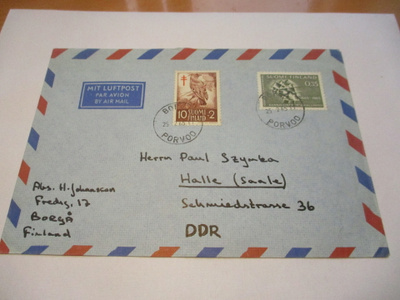 MIT LUFTPOST
PAR AVION
BY AIR MAIL
10 SUOMI FINLAND 2
SUOMI FINLAND
0,35
PORVOO
PORVOO
Herrn Paul Szymba
Halle (Saale)
Schmiedstrasse 36
DDR
Abs. H. Johansson
Fredsg. 17
Borgå
Finland